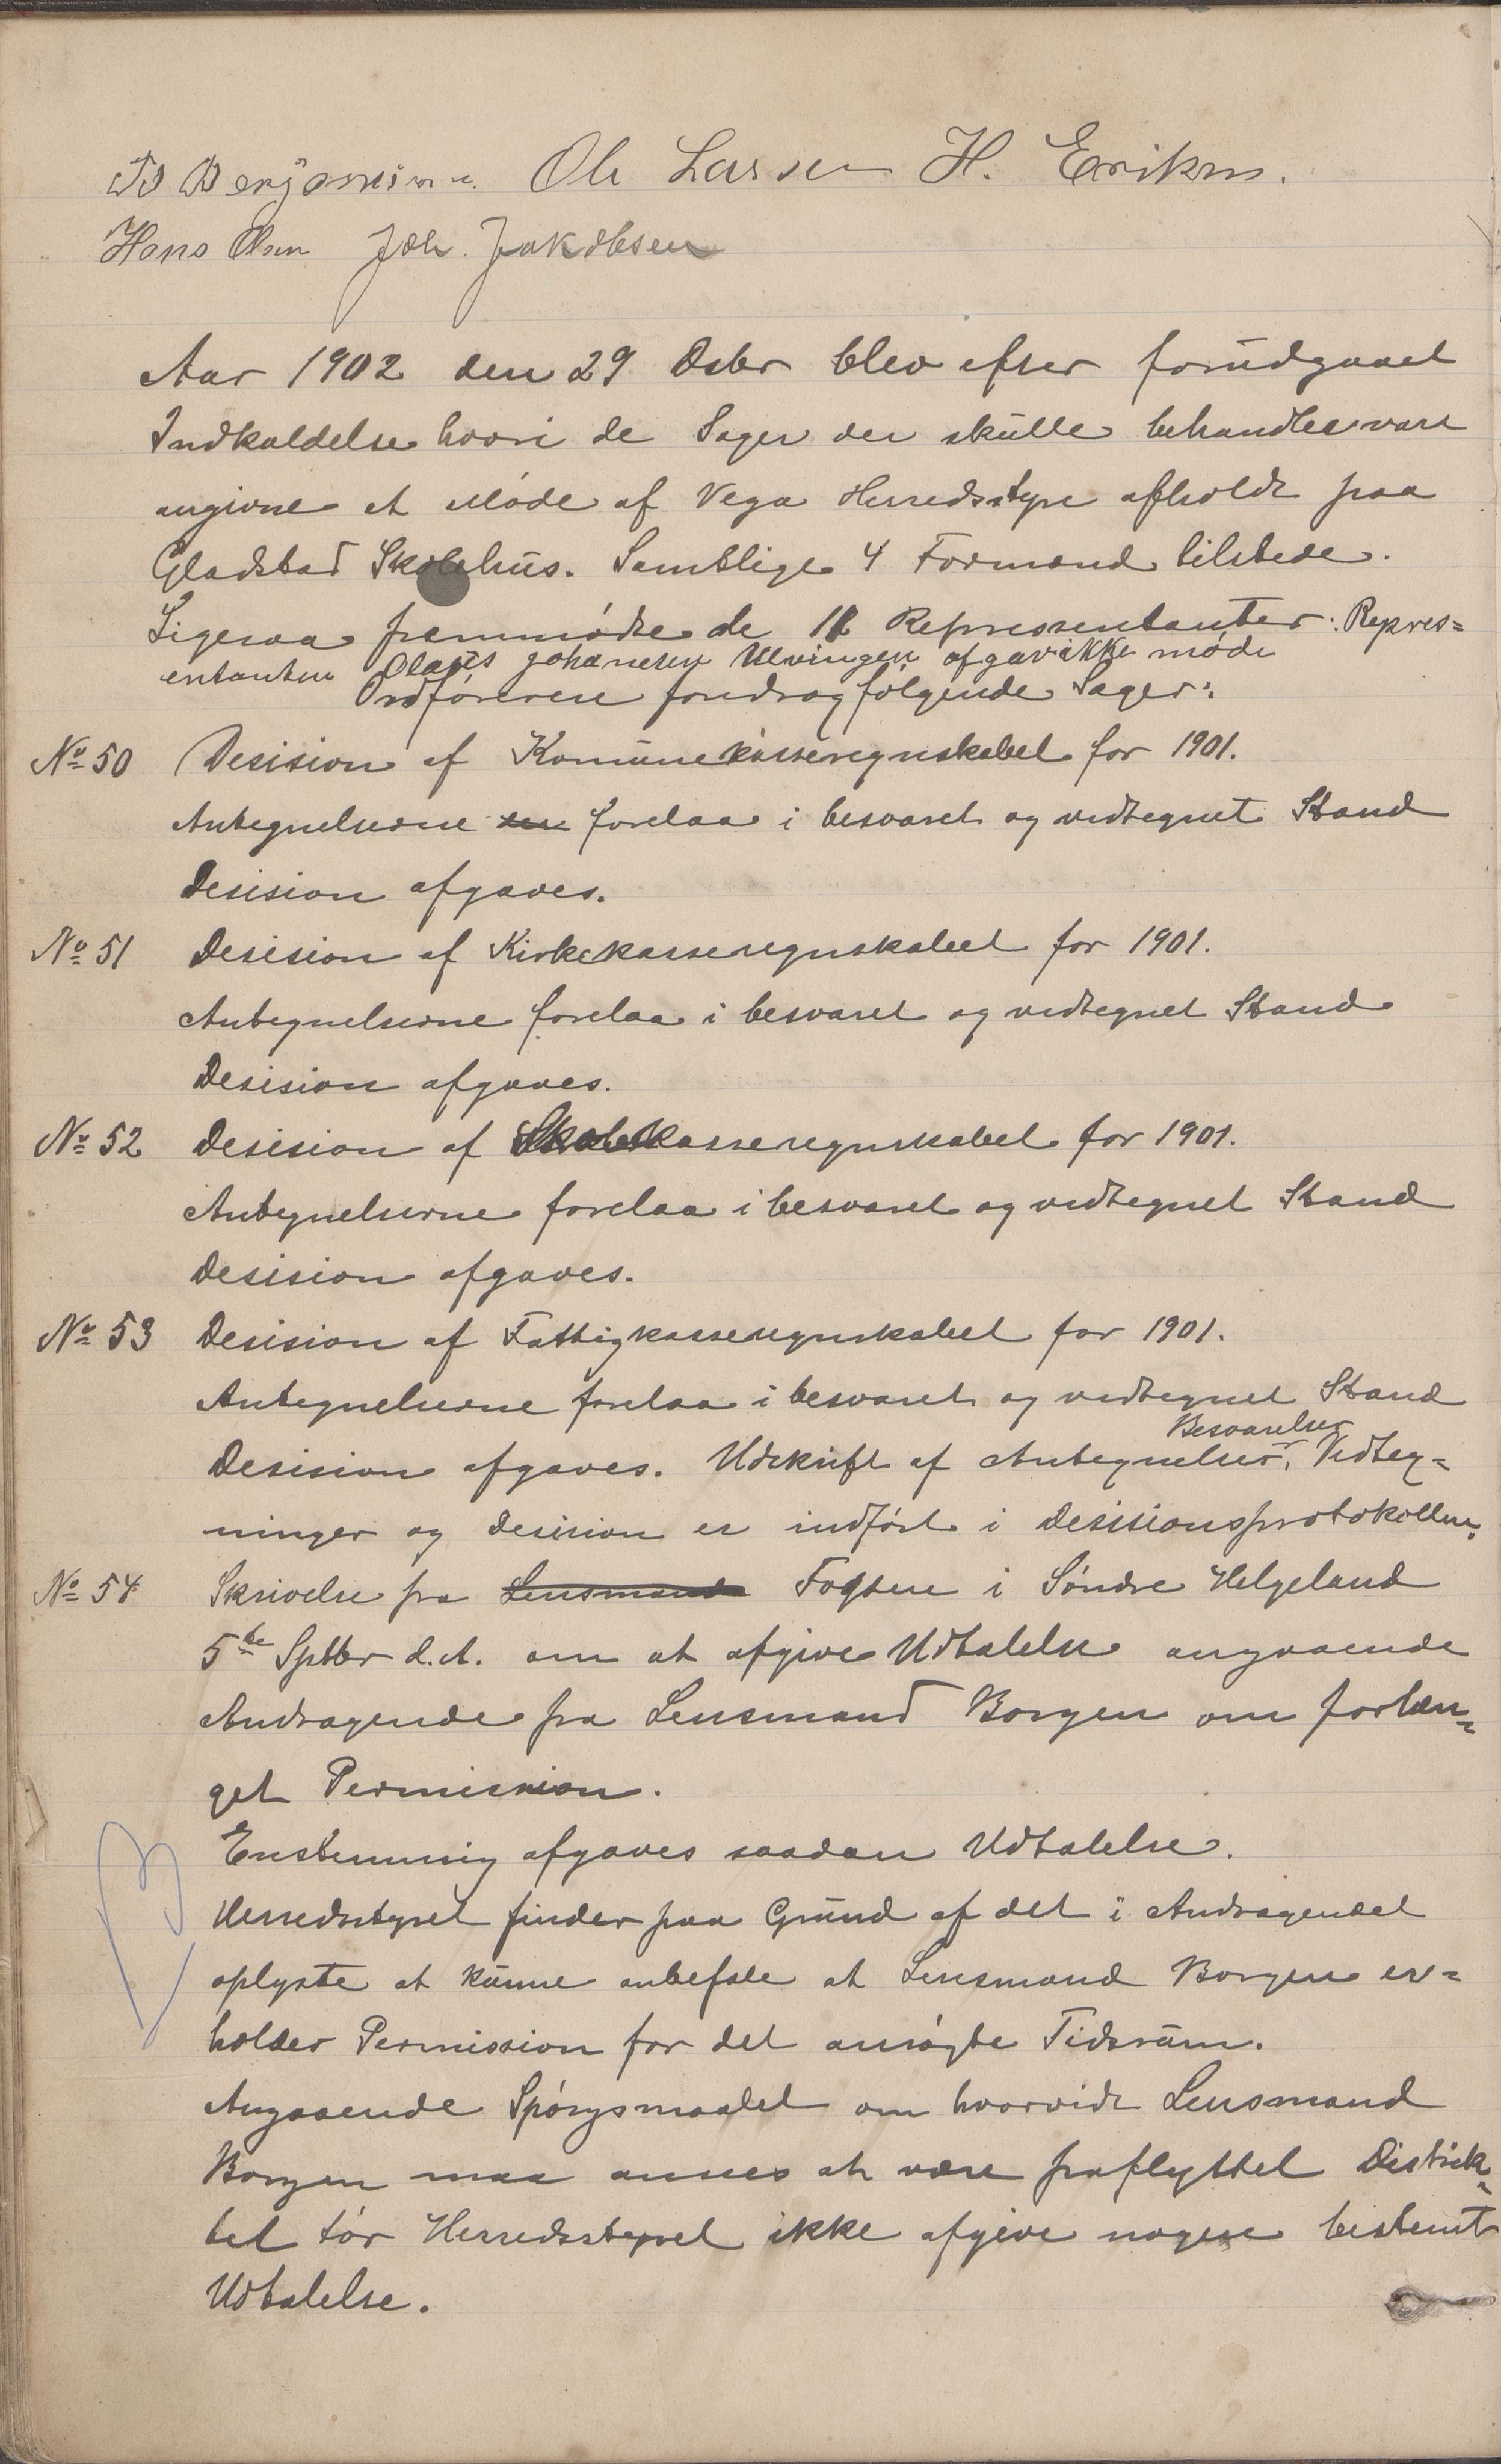 Benjaminsen. Ole Larsen H. Eriksen.
Hans Olsen Joh. Jakobsen
Aar 1902 den 29 Dsbr blev efter forudgaaet
Indkaldelse hvori de Sager der skulle behandles vare
angivne et Møde af Vega Herredsstyre afholdt paa
Gladstad Skolehus. Samtlige 4 Formænd tilstede.
Ligesaa fremmødte de 11 Repressentanter. Repres=
entanten Olaus Johanesen Ulvingen afgav ikke møde
Ordføreren foredrog følgende Sager:
No 50 Desision af Komunekasseregnskabet for 1901.
Antegnelserne forelaa i besvaret og vedtegnet Stand
Desision afgaves.
No 51 Desision af Kirkekasseregnskabet for 1901.
Antegnelserne forelaa i besvaret og vedtegnet Stand
Desision afgaves.
No 52 Desision af Skolekasseregnskabet for 1901.
Antegnelserne forelaa i besvaret og vedtegnet Stand
Desision afgaves.
No 53 Desision af Fattigkasseregnskabet for 1901.
Antegnelserne forelaa i besvaret og vedtegnet Stand
Besvarelser
Desision afgaves. Udskrift af Antegnelser, Vedteg=
ninger og Desision er indført i Desisionsprotokollen.
No 54 Skrivelse fra Lensmand Fogden i Søndre Helgeland
5te Sptbr d.A. om at afgive Udtalelse angaaende
Andragende fra Lensmand Borgen om forlæn=
get Permission.
Enstemmig afgaves saadan Udtalelse.
Herredsstyret finder paa Grund af det i Andragendet
oplyste at kunne anbefale at Lensmand Borgen er=
holder Permission for det ansøgte Tidsrum.
Angaaende Spørgsmaalet om hvorvidt Lensmand
Borgen maa ansees at være fraflyttet Distrik=
tet tør Herredsstyret ikke afgive nogen bestemt
Udtalelse.